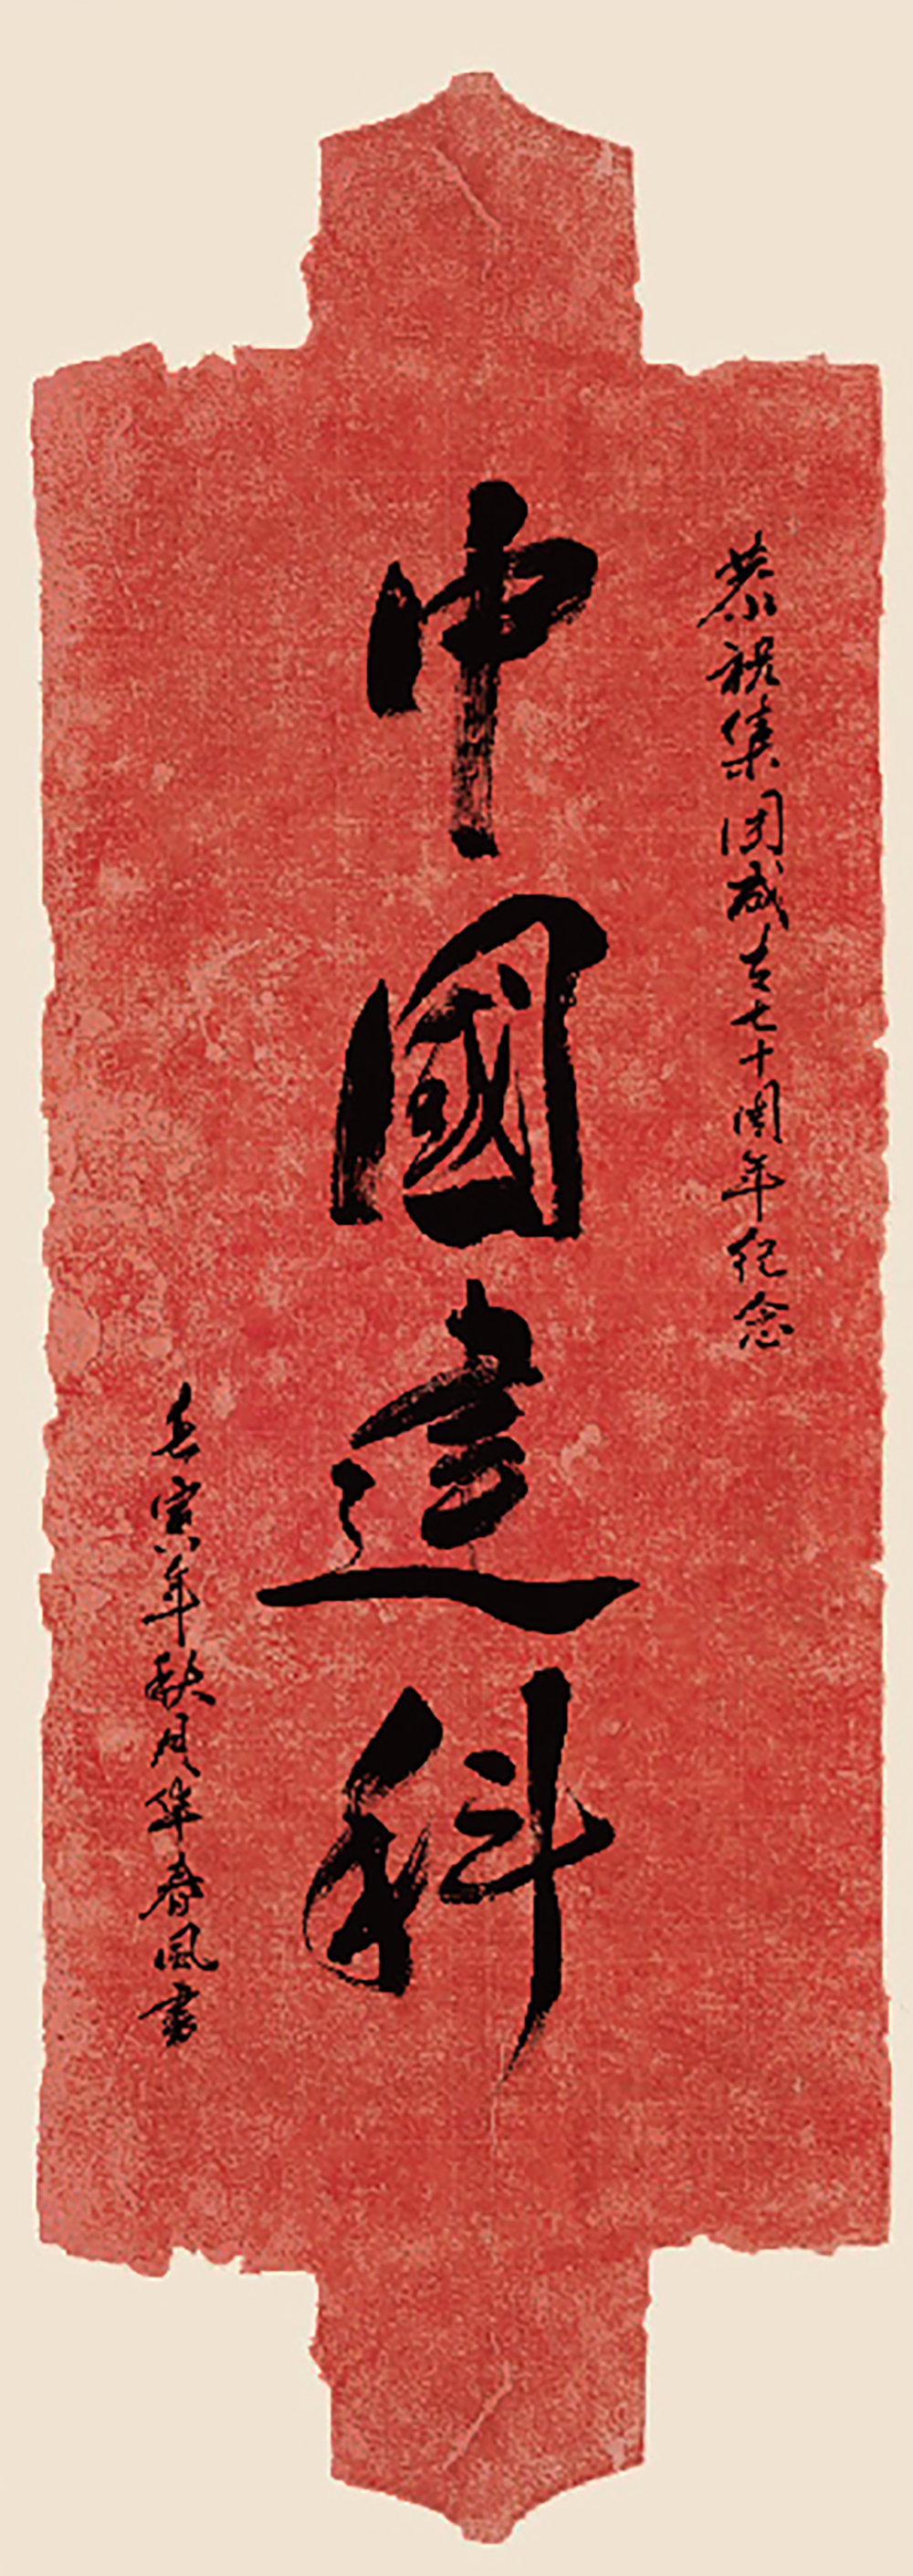 恭祝集团成立七十周年纪念
中國建科
壬寅年秋月华春風書